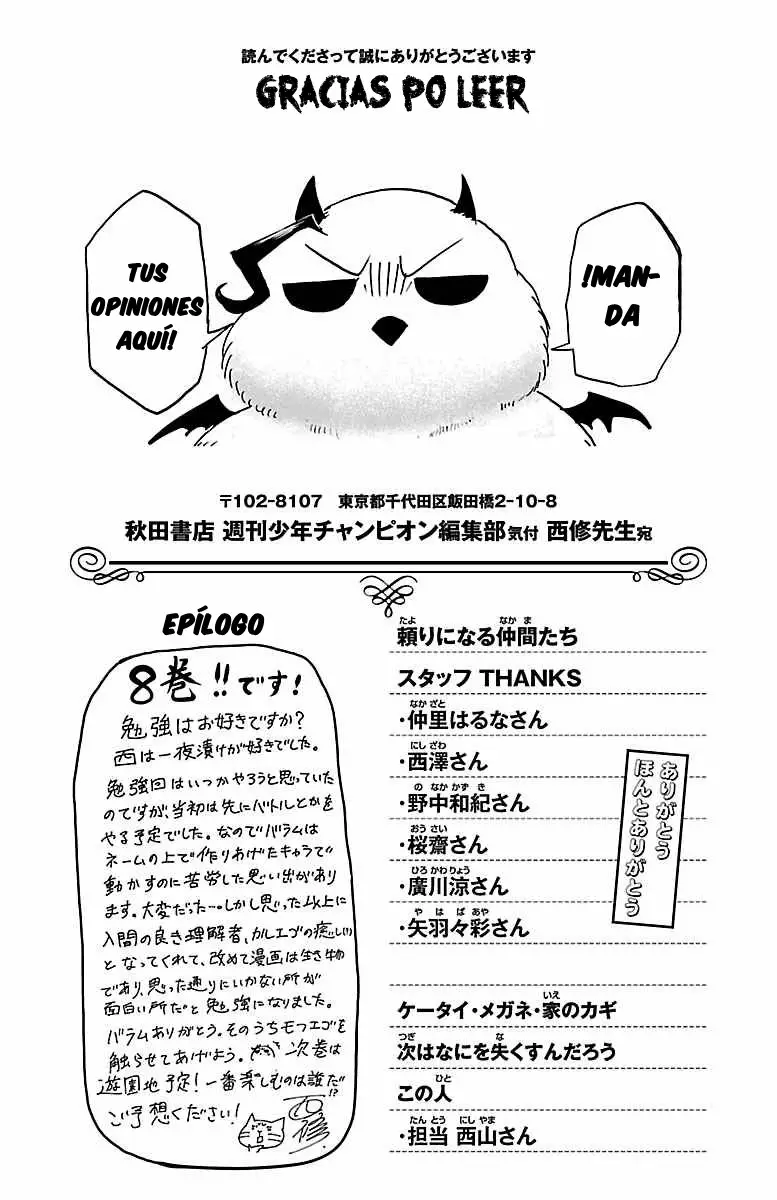 読んでくださって誠にありがとうございます
GRACIAS PO LEER
!MAN-
DA
TUS
OPINIONES
AQUÍ!
〒102-8107 東京都千代田区飯田橋2-10-8
秋田書店 週刊少年チャンピオン編集部気付 西修先生宛
EPÍLOGO
8巻!!です!
勉強はお好きですか?
西は一夜漬けが好きでした。
勉強回はいつかやろうと思っていた
のですが、当初は先にバトルとかを
やる予定でした。なのでバラムは
ネームの上で作りあげたキャラで
動かすのに苦労した思い出があり
ます。大変だった…。しかし思った以上に
入間の良き理解者、カルエゴの癒し(い)
となってくれて、改めて漫画は生き物
であり、思った通りにいかない所が
面白い所だと勉強になりました。
バラムありがとう。そのうちモフエゴを
触らせてあげよう。次巻は
遊園地予定!一番楽しむのは誰だ!?
ご予想ください!
西修
頼りになる仲間たち
スタッフ THANKS
・仲里はるなさん
・西澤さん
・野中和紀さん
・桜齋さん
・廣川涼さん
・矢羽々彩さん
ありがとう
ほんとありがとう
ケータイ・メガネ・家のカギ
次はなにを失くすんだろう
この人
・担当 西山さん